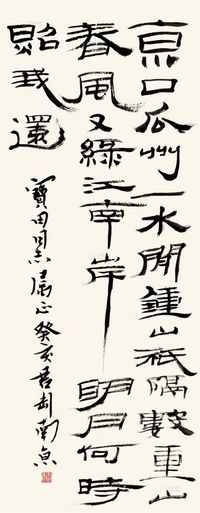 京口瓜州一水間鍾山祇隔數重山
春風又綠江南岸明月何時
照我還
寶田同志屬正癸亥君匋南京